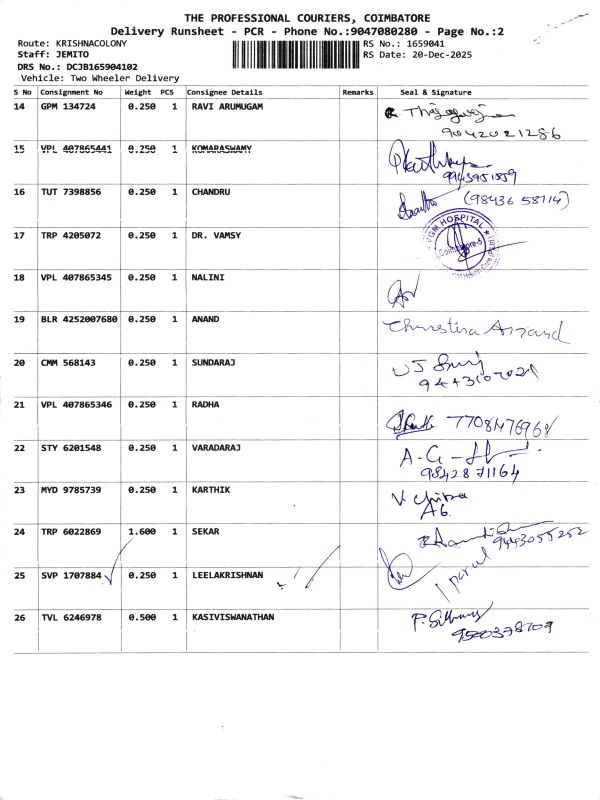 THE PROFESSIONAL COURIERS, COIMBATORE
Delivery Runsheet - PCR - Phone No.:9047080280 - Page No.:2
Route: KRISHNACOLONY RS No.: 1659041
Staff: JEMITO RS Date: 20-Dec-2025
DRS No.: DCJB165904102
Vehicle: Two Wheeler Delivery
S No Consignment No Weight PCS Consignee Details Remarks Seal & Signature
14 GPM 134724 0.250 1 RAVI ARUMUGAM
9042021286
15 VPL 407865441 0.250 1 KOMARASWAMY
9943951859
16 TUT 7398856 0.250 1 CHANDRU (98436 58114)
17 TRP 4205072 0.250 1 DR. VAMSY
VGM HOSPITAL
Coimbatore-5
18 VPL 407865345 0.250 1 NALINI
19 BLR 4252007680 0.250 1 ANAND
20 CMM 568143 0.250 1 SUNDARAJ
21 VPL 407865346 0.250 1 RADHA 7708476968
22 STY 6201548 0.250 1 VARADARAJ A.G
9842871164
23 MYD 9785739 0.250 1 KARTHIK V. Chitra
A6.
24 TRP 6022869 1.600 1 SEKAR
9443055252
25 SVP 1707884 0.250 1 LEELAKRISHNAN 1 parcel
26 TVL 6246978 0.500 1 KASIVISWANATHAN